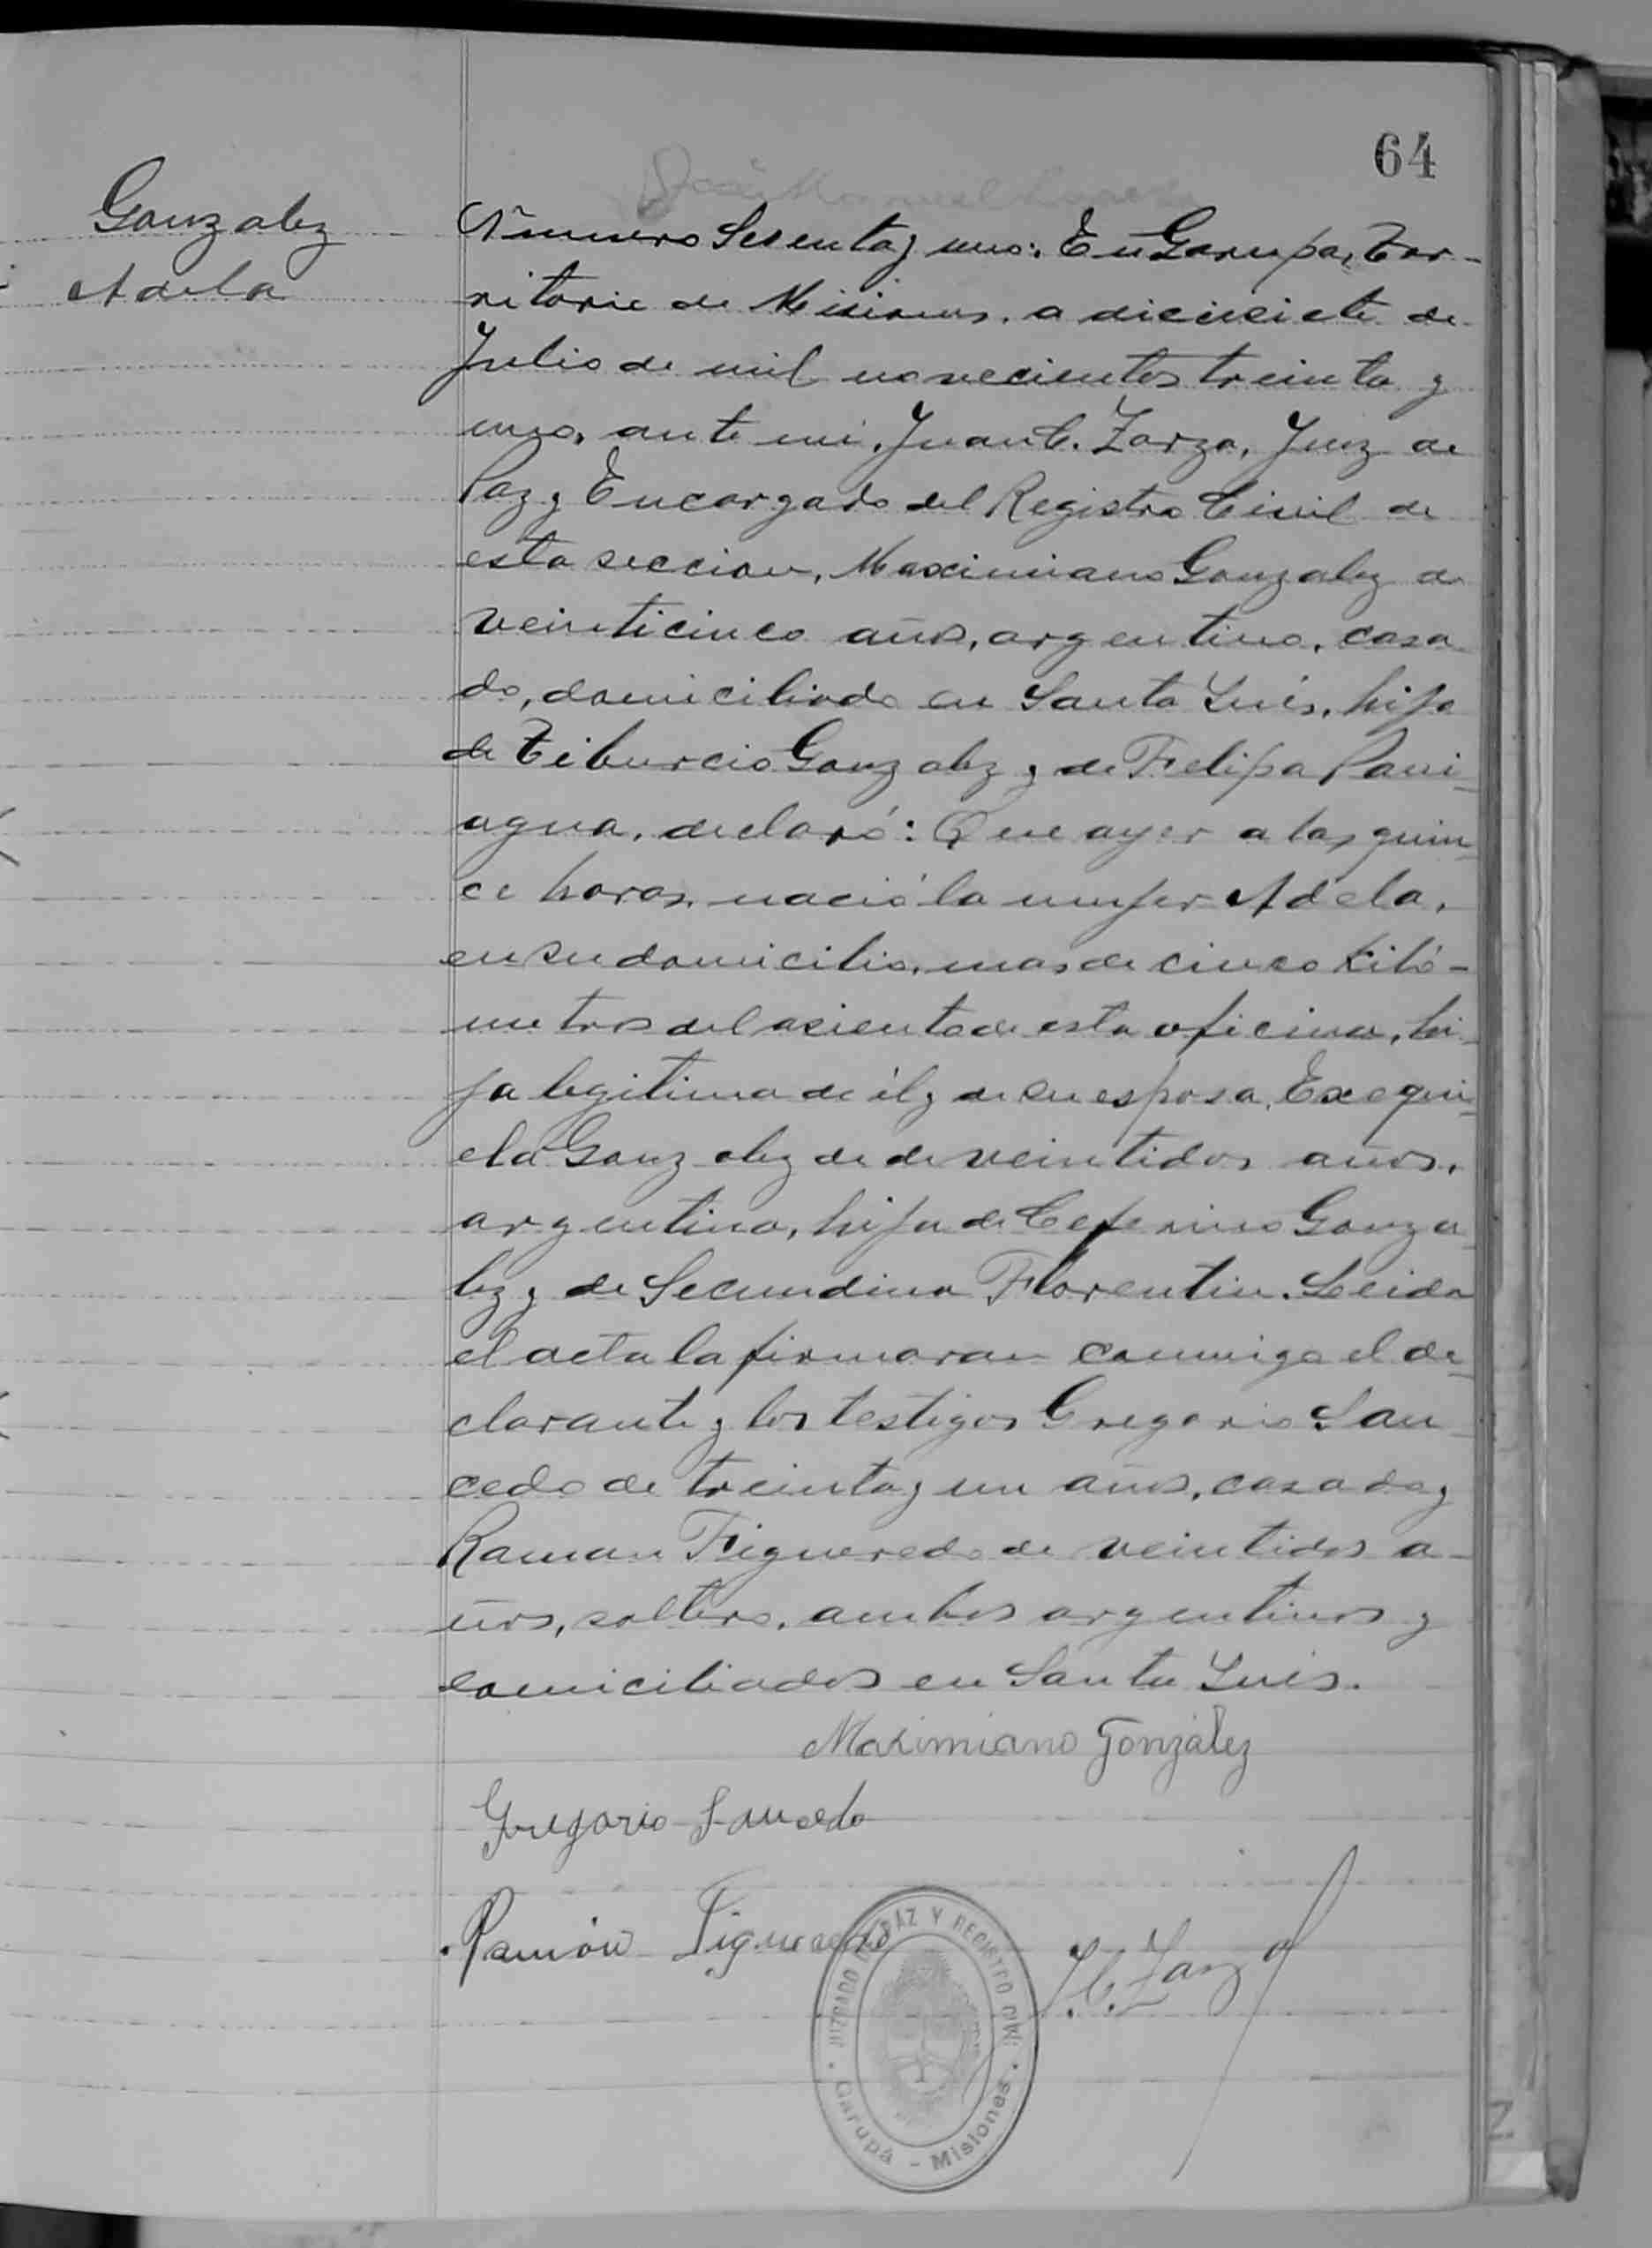 64
Gonzalez
Adela
Número Sesenta y uno: En Garupa, Ter-
ritorio de Misiones, a diecisiete de
Julio de mil novecientos treinta y
uno, ante mi, Juan C. Zarza, Juez de
Paz y Encargado del Registro Civil de
esta seccion, Maximiano Gonzalez de
veinticinco años, argentino, casa
do, domiciliado en Santa Inés, hijo
de Tiburcio Gonzalez y de Felipa Pani-
agua, declaró: Que ayer a las quin-
ce horas, nació la mujer Adela,
en su domicilio, mas de cinco kiló-
metros del asiento de esta oficina, hi-
ja legitima de él y de su esposa, Exequi-
ela Gonzalez de de veintidos años,
argentina, hija de Ceferino Gonza
lez y de Secundina Florentin. Leida
el acta la firmaran conmigo el de-
clarante y los testigos Gregorio Sau
cedo de treinta y un años, casado y
Ramon Figueredo de veintidos a-
ños, soltero, ambos argentinos y
domiciliados en Santa Inés.
Maximiano González
Gregorio Saucedo
Ramón Figueredo
J.C. Zarza
JUZGADO DE PAZ Y REGISTRO CIVIL
Garupá - Misiones